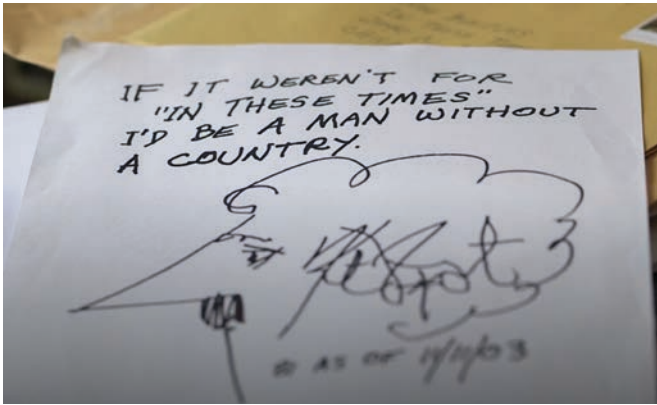 IF IT WEREN'T FOR
"IN THESE TIMES"
I'D BE A MAN WITHOUT
A COUNTRY.
AS OF 11/11/03